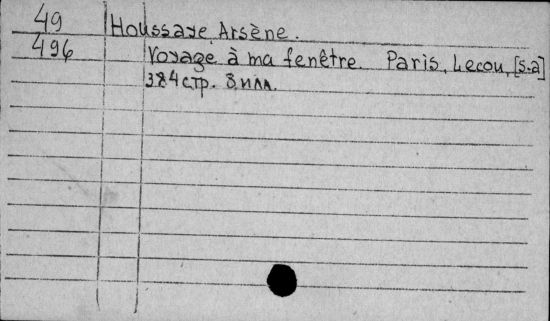 49 Houssaye Arsène.
496 Voyage à ma fenêtre Paris, Lecou, [s.a]
384 стр. 8. илл.